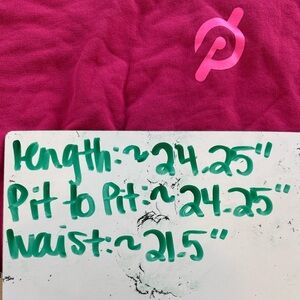 length:~24.25"
Pit to Pit:~24.25"
waist:~21.5"